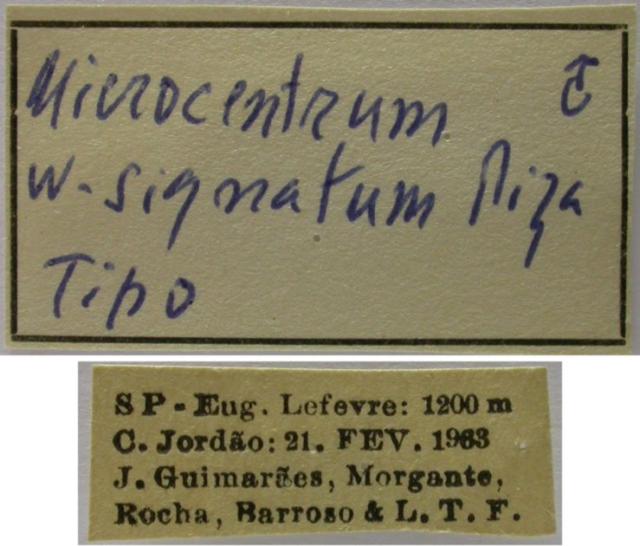 Microcentrum ♂
w-signatum Piza
Tipo
SP-Eug. Lefevre: 1200 m
C. Jordão: 21. FEV. 1963
J. Guimarães, Morgante,
Rocha, Barroso & L. T. F.